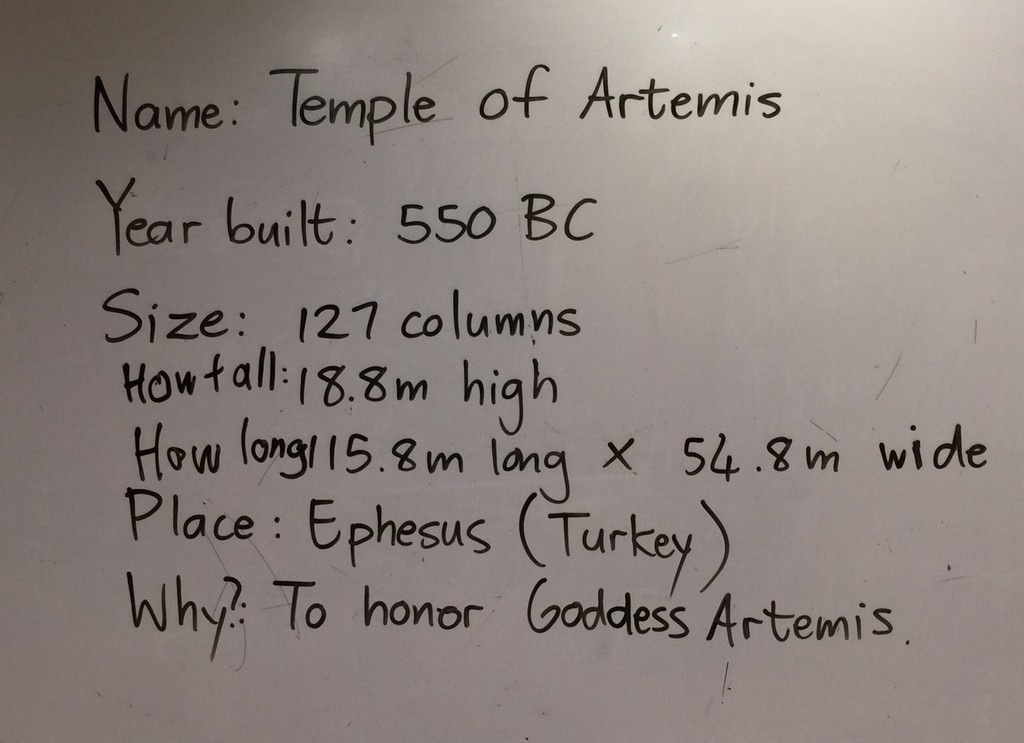 Name: Temple of Artemis
Year built: 550 BC
Size: 127 columns
How tall: 18.8m high
How long 115.8m long x 54.8m wide
Place: Ephesus (Turkey)
Why?: To honor Goddess Artemis.